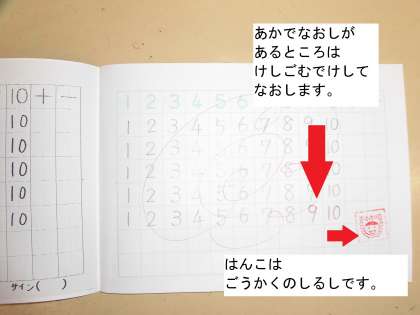 あかでなおしが
あるところは
けしごむでけして
なおします。
10 + -
10
10
10
10
10
サイン( )
1 2 3 4 5 6 7 8 9 10
1 2 3 4 5 6 7 8 9 10
1 2 3 4 5 6 7 8 9 10
1 2 3 4 5 6 7 8 9 10
1 2 3 4 5 6 7 8 9 10
1 2 3 4 5 6 7 8 9 10
はんこは
ごうかくのしるしです。